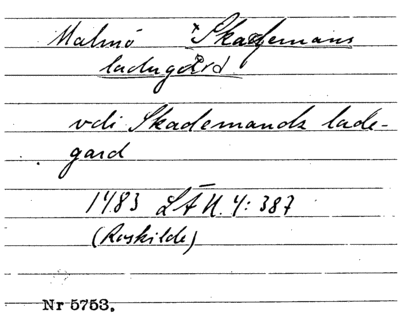 Malmö *Skademans
ladugård
vdi Skademandz lade-
gard
1483 LÄU. 4: 387
(Roskilde)
Nr 5753.